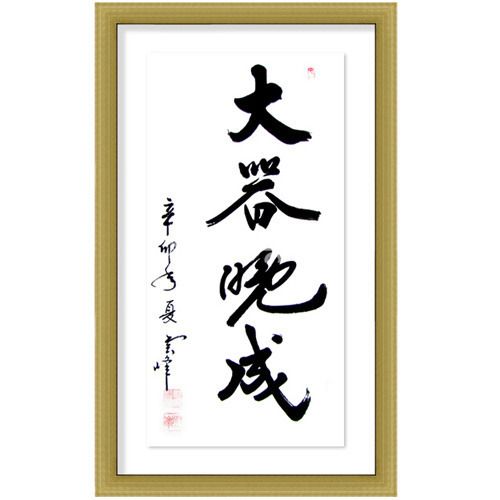 大器晚成
辛卯年夏云峰